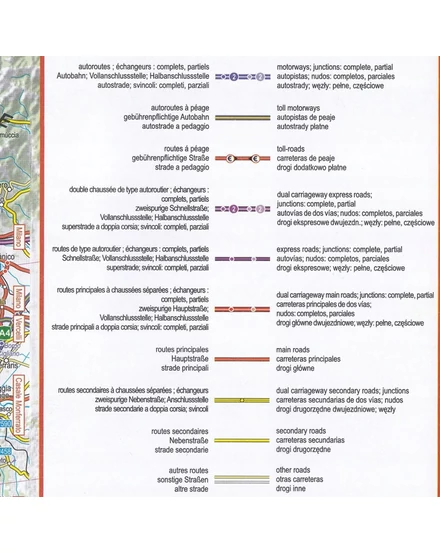 autoroutes ; échangeurs : complets, partiels
Autobahn; Vollanschlussstelle; Halbanschlussstelle
autostrade; svincoli: completi, parziali
2
2
motorways; junctions: complete, partial
autopistas; nudos: completos, parciales
autostrady; węzły: pełne, częściowe
autoroutes à péage
gebührenpflichtige Autobahn
autostrade a pedaggio
toll motorways
autopistas de peaje
autostrady płatne
routes à péage
gebührenpflichtige Straße
strade a pedaggio
€
€
toll-roads
carreteras de peaje
drogi dodatkowo płatne
double chaussée de type autoroutier ; échangeurs :
complets, partiels
zweispurige Schnellstraße;
Vollanschlussstelle; Halbanschlussstelle
superstrade a doppia corsia; svincoli: completi, parziali
2
2
dual carriageway express roads;
junctions: complete, partial
autovías de dos vías; nudos: completos, parciales
drogi ekspresowe dwujezdn.; węzły: pełne, częściowe
routes de type autoroutier ; échangeurs : complets, partiels
Schnellstraße; Vollanschlussstelle; Halbanschlussstelle
superstrade; svincoli: completi, parziali
express roads; junctions: complete, partial
autovías; nudos: completos, parciales
drogi ekspresowe; węzły: pełne, częściowe
routes principales à chaussées séparées ; échangeurs :
complets, partiels
zweispurige Hauptstraße;
Vollanschlussstelle; Halbanschlussstelle
strade principali a doppia corsia; svincoli: completi, parziali
dual carriageway main roads; junctions: complete, partial
carreteras principales de dos vías;
nudos: completos, parciales
drogi główne dwujezdniowe; węzły: pełne, częściowe
routes principales
Hauptstraße
strade principali
main roads
carreteras principales
drogi główne
routes secondaires à chaussées séparées ; échangeurs
zweispurige Nebenstraße; Anschlussstelle
strade secondarie a doppia corsia; svincoli
dual carriageway secondary roads; junctions
carreteras secundarias de dos vías; nudos
drogi drugorzędne dwujezdniowe; węzły
routes secondaires
Nebenstraße
strade secondarie
secondary roads
carreteras secundarias
drogi drugorzędne
autres routes
sonstige Straßen
altre strade
other roads
otras carreteras
drogi inne
Milano
Milano
Vercelli
A4
Casale Monferrato